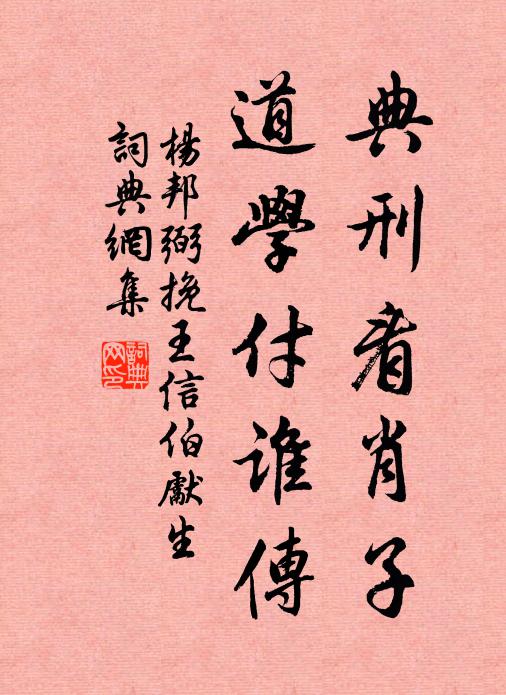 典刑看肖子
道學付誰傳
楊邦弼挽王信伯獻生
詞典網集
詞典網印